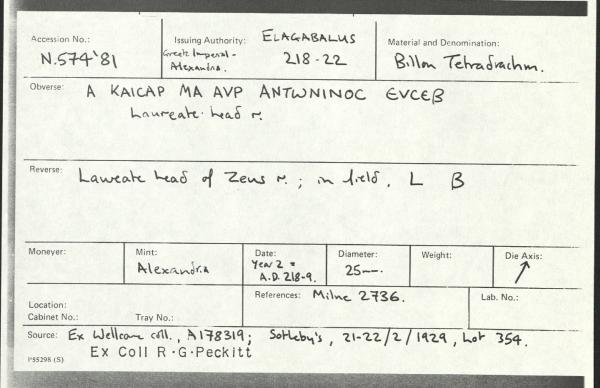 Accession No.: N.574'81
Issuing Authority: ELAGABALUS
Greek Imperial - Alexandria. 218-22
Material and Denomination: Billon Tetradrachm.
Obverse: A KAICAP MA AVP ANTWNINOC EVCEB
Laureate head r.
Reverse: Laureate head of Zeus r. ; in field, L B
Moneyer:
Mint: Alexandria
Date: Year 2 = A.D. 218-9.
Diameter: 25mm.
Weight:
Die Axis: ↗
Location:
Cabinet No.: Tray No.:
References: Milne 2736.
Lab. No.:
Source: Ex Wellcome coll., A178319; Sotheby's, 21-22/2/1929, Lot 354.
Ex Coll R·G·Peckitt
P55298 (S)